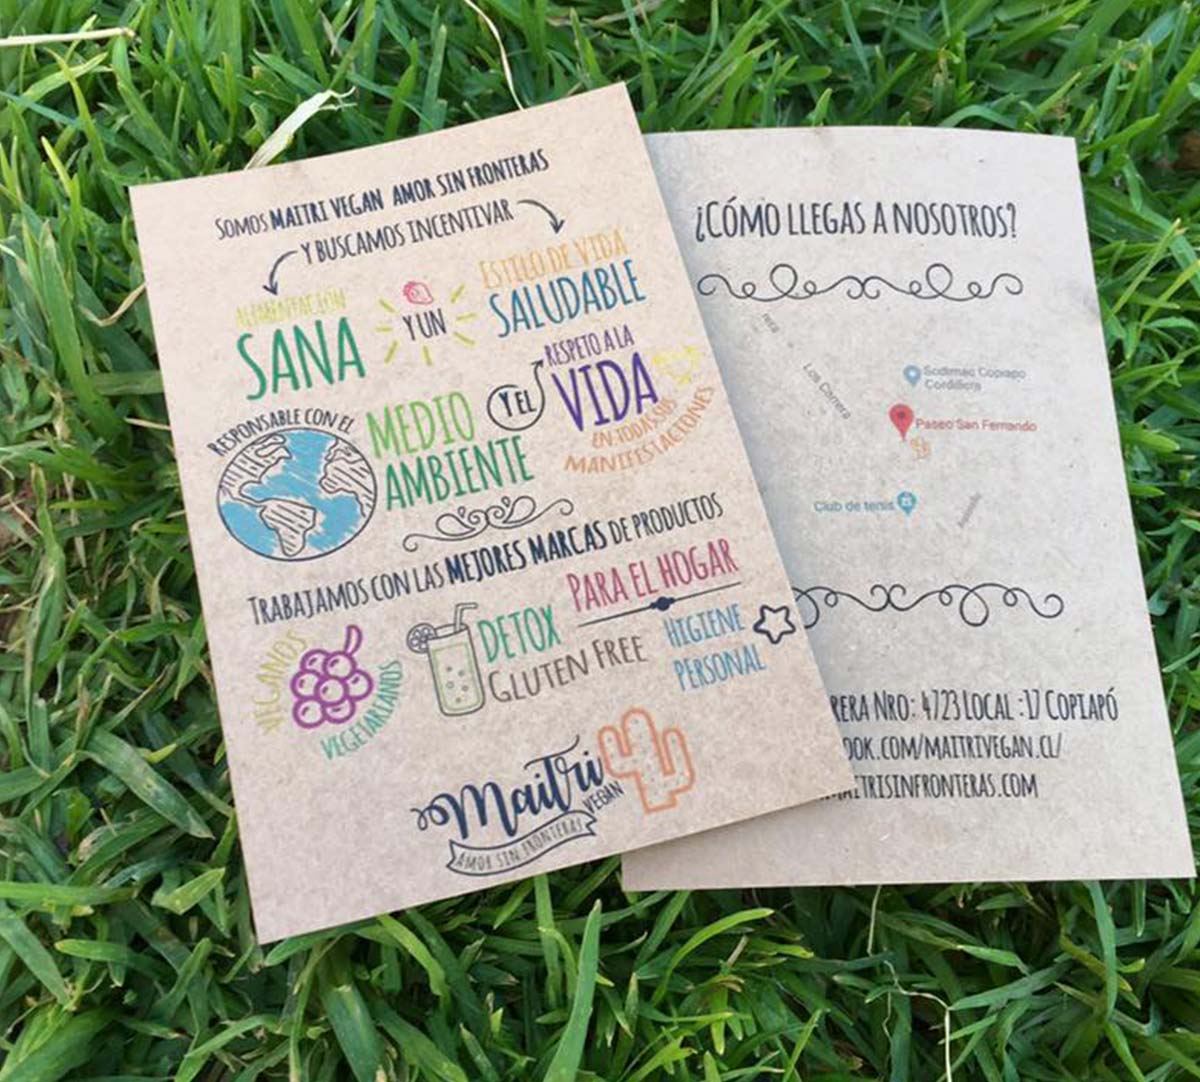 SOMOS MAITRI VEGAN AMOR SIN FRONTERAS
Y BUSCAMOS INCENTIVAR
ALIMENTACIÓN
SANA
Y UN
ESTILO DE VIDA
SALUDABLE
RESPONSABLE CON EL
MEDIO
AMBIENTE
Y EL
RESPETO A LA
VIDA
EN TODAS SUS
MANIFESTACIONES
TRABAJAMOS CON LAS MEJORES MARCAS DE PRODUCTOS
VEGANOS
VEGETARIANOS
DETOX
GLUTEN FREE
PARA EL HOGAR
HIGIENE
PERSONAL
Maitri
VEGAN
AMOR SIN FRONTERAS
¿CÓMO LLEGAS A NOSOTROS?
Los Carrera
Sodimac Copiapo
Cordillera
Paseo San Fernando
Club de tenis
RERA NRO: 4723 LOCAL :17 COPIAPÓ
OOK.COM/MAITRIVEGAN.CL/
MAITRISINFRONTERAS.COM